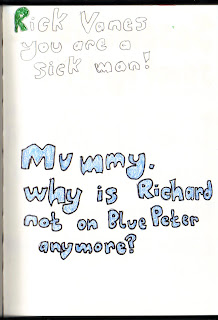 Rick Vanes
you are a
sick man!
Mummy.
why is Richard
not on Blue Peter
anymore?